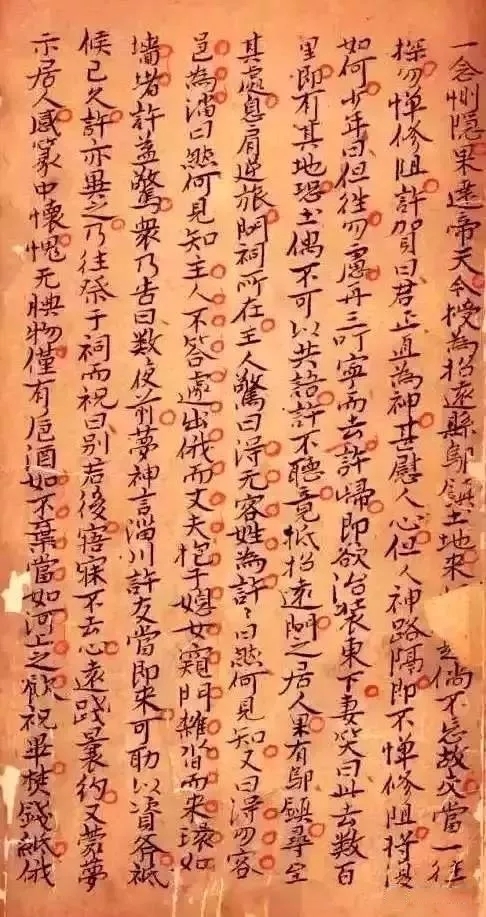 一念惻隱果達帝天今授為招遠縣鄔鎮土地來倘不忘故交當一往
探勿憚修阻許賀曰君正直為神甚慰人心但人神路隔即不憚修阻將復
如何少年曰但往勿慮再三叮寧而去許歸即欲治裝東下妻笑曰此去數百
里即有其地恐土偶不可以共語許不聽竟抵招遠問之居人果有鄔鎮尋至
其處息肩逆旅問祠所在主人驚曰得无客姓為許〻曰然何見知又曰得勿客
邑為淄曰然何見知主人不答遽出俄而丈夫抱子媳女窺門雜沓而來環如
墻堵許益驚衆乃告曰數夜前夢神言淄川許友當即來可助以資斧祗
候已久許亦異之乃往祭于祠而祝曰別君後寤寐不去心遠踐曩約又蒙夢
示居人感篆中懷愧无腆物僅有卮酒如不棄當如河上之飲祝畢焚錢紙俄